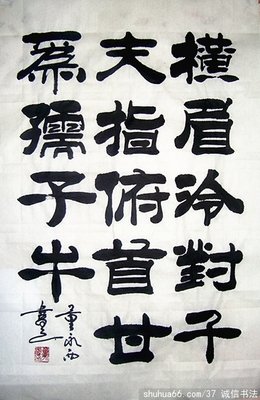 橫眉冷對千
夫指俯首甘
爲孺子牛
shuhua66.com/37 诚信书法